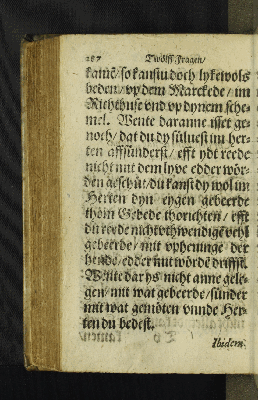 287 Twölff Fragen/
kamē/ so kanstu doch lykewols
beden/ vp dem Marckede/ im
Richthuse vnd vp dynem sche-
mel. Wente daranne isset ge-
noch/ dat du dy süluest im her-
ten affsünderst/ efft ydt reede
nicht mit dem lyve edder wör-
den geschüt/ du kanst dy wol im
Herten dyn eygen gebeerde
thom Gebede thorichten/ efft
du reyde nicht vthwendige vehl
gebeerde/ mit vpheuinge der
hende/ edder mit wörde driffst.
Wente dar ys nicht anne gele-
gen/ mit wat gebeerde/ sünder
mit wat gemöten vnnde Her-
ten du bedest.
Ibidem.